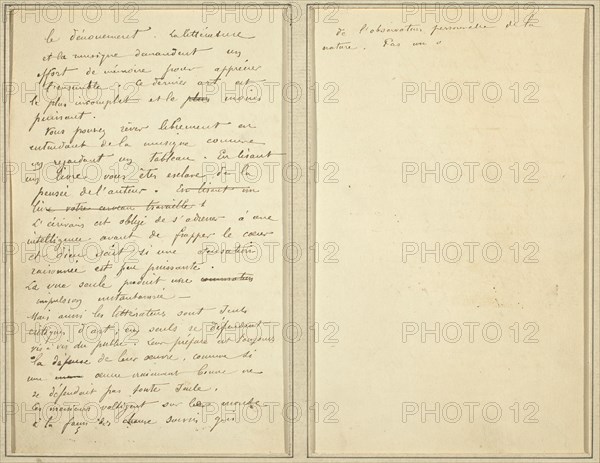 le dénouement. La littérature
et la musique demandent un
effort de mémoire pour apprécier
l'ensemble. Ce dernier art est
le plus incomplet et le plus moins
puissant.
Vous pouvez rêver librement en
entendant de la musique comme
en regardant un tableau. En lisant
un livre vous êtes esclave de la
pensée de l'auteur. En lisant un
livre votre cerveau travaille
L'écrivain est obligé de s'adresser à une
intelligence avant de frapper le cœur
et Dieu sait si une sensation
raisonnée est peu puissante.
La vue seule produit une
impulsion instantanée -
Mais aussi les littérateurs sont seuls
critiques d'art, eux seuls se défendent
vis à vis du public. Leur préface est toujours
la défense de leur œuvre, comme si
une œuvre vraiment bonne ne
se défendait pas toute seule.
Ces messieurs voltigent sur le monde
à la façon des chauve souris qui
de l'observation personnelle de la
nature. Pas un
PHOTO 12